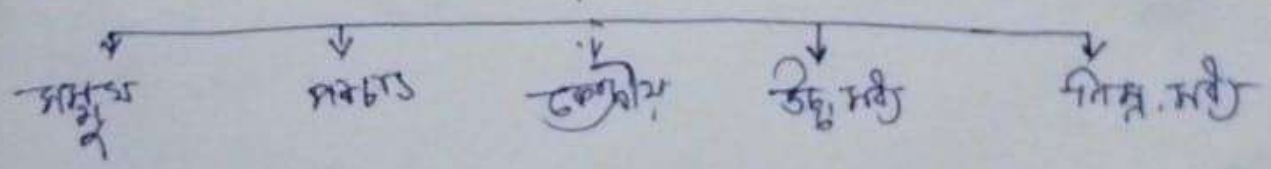 সম্মুখ পশ্চাৎ কেন্দ্রীয় উচ্চ মধ্য নিম্ন মধ্য